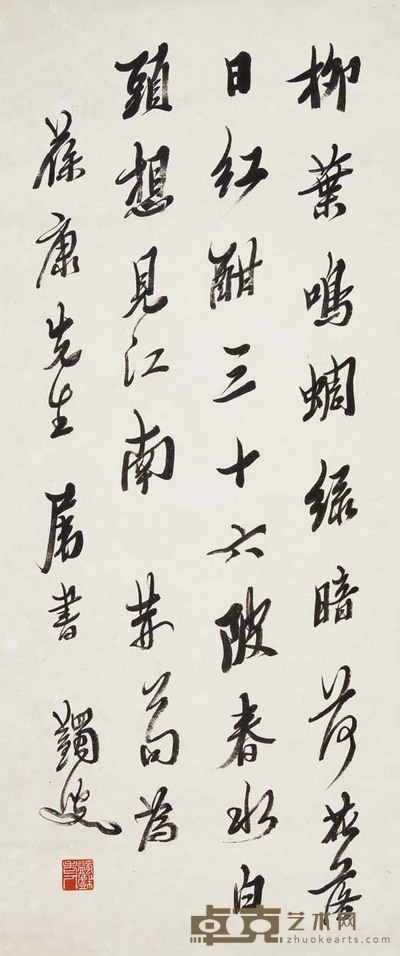 柳葉鳴蜩綠暗荷花落
日紅酣三十六陂春水白
頭想見江南 荆公句為
葆康先生屬書 蠲叟
卓克艺术网
zhuokearts.com